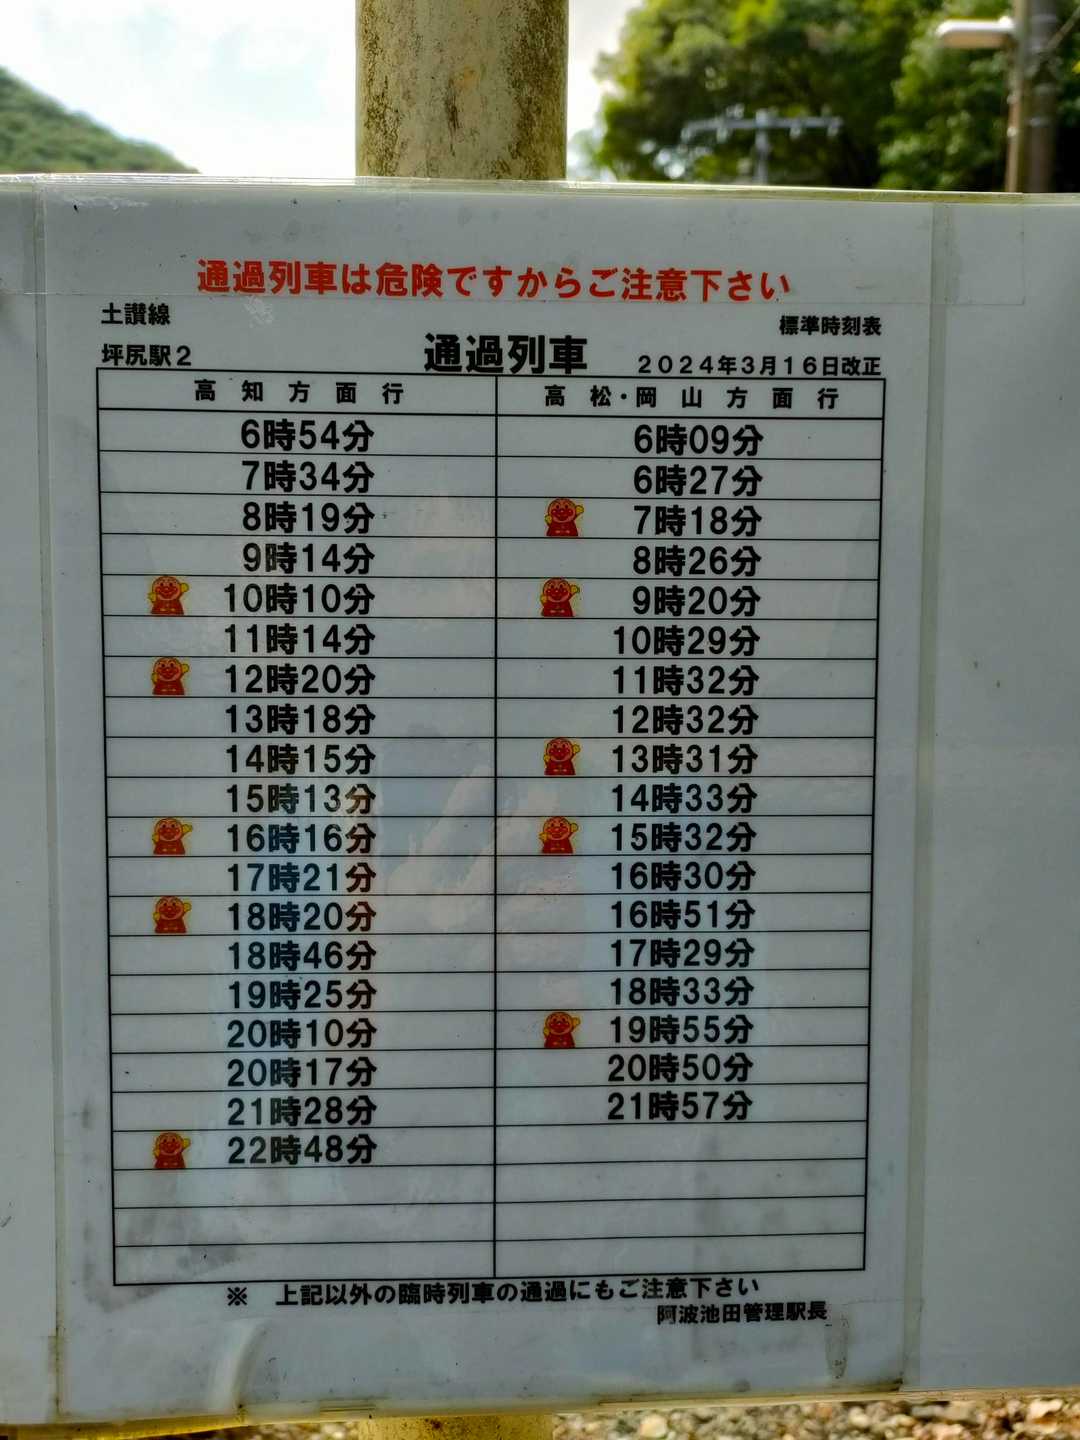 通過列車は危険ですからご注意下さい
土讃線
標準時刻表
坪尻駅2
通過列車
2024年3月16日改正
高知方面行
高松・岡山方面行
6時54分 6時09分
7時34分 6時27分
8時19分 7時18分
9時14分 8時26分
10時10分 9時20分
11時14分 10時29分
12時20分 11時32分
13時18分 12時32分
14時15分 13時31分
15時13分 14時33分
16時16分 15時32分
17時21分 16時30分
18時20分 16時51分
18時46分 17時29分
19時25分 18時33分
20時10分 19時55分
20時17分 20時50分
21時28分 21時57分
22時48分
※ 上記以外の臨時列車の通過にもご注意下さい
阿波池田管理駅長